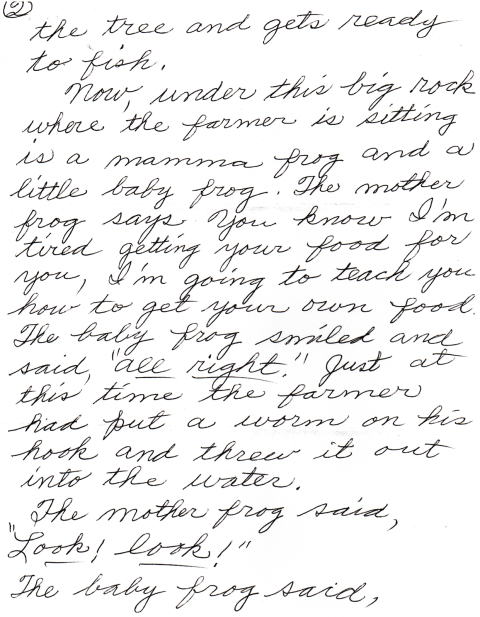 (2)
the tree and gets ready
to fish.
Now, under this big rock
where the farmer is sitting
is a mamma frog and a
little baby frog. The mother
frog says You know I'm
tired getting your food for
you, I'm going to teach you
how to get your own food.
The baby frog smiled and
said, "all right." Just at
this time the farmer
had put a worm on his
hook and threw it out
into the water.
The mother frog said,
"Look! look!"
The baby frog said,